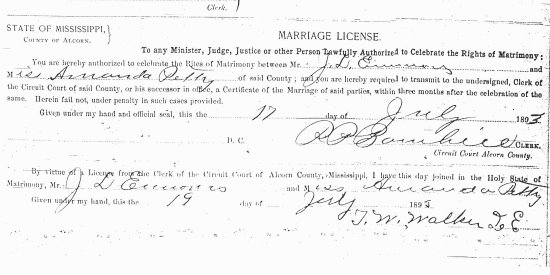 Clerk.
STATE OF MISSISSIPPI,
COUNTY OF ALCORN.
MARRIAGE LICENSE.
To any Minister, Judge, Justice or other Person Lawfully Authorized to Celebrate the Rights of Matrimony:
You are hereby authorized to celebrate the Rites of Matrimony between Mr. J. D. Emmons and
Miss Amanda Petty of said County; and you are hereby required to transmit to the undersigned, Clerk of
the Circuit Court of said County, or his successor in office, a Certificate of the Marriage of said parties, within three months after the celebration of the
same. Herein fail not, under penalty in such cases provided.
Given under my hand and official seal, this the 17 day of July 1893
D. C. CLERK,
Circuit Court Alcorn County.
By virtue of a License from the Clerk of the Circuit Court of Alcorn County, Mississippi, I have this day joined in the Holy State of
Matrimony, Mr. J D Emmons and Miss Amanda Petty
Given under my hand, this the 19 day of July 1893
T. W. Walker